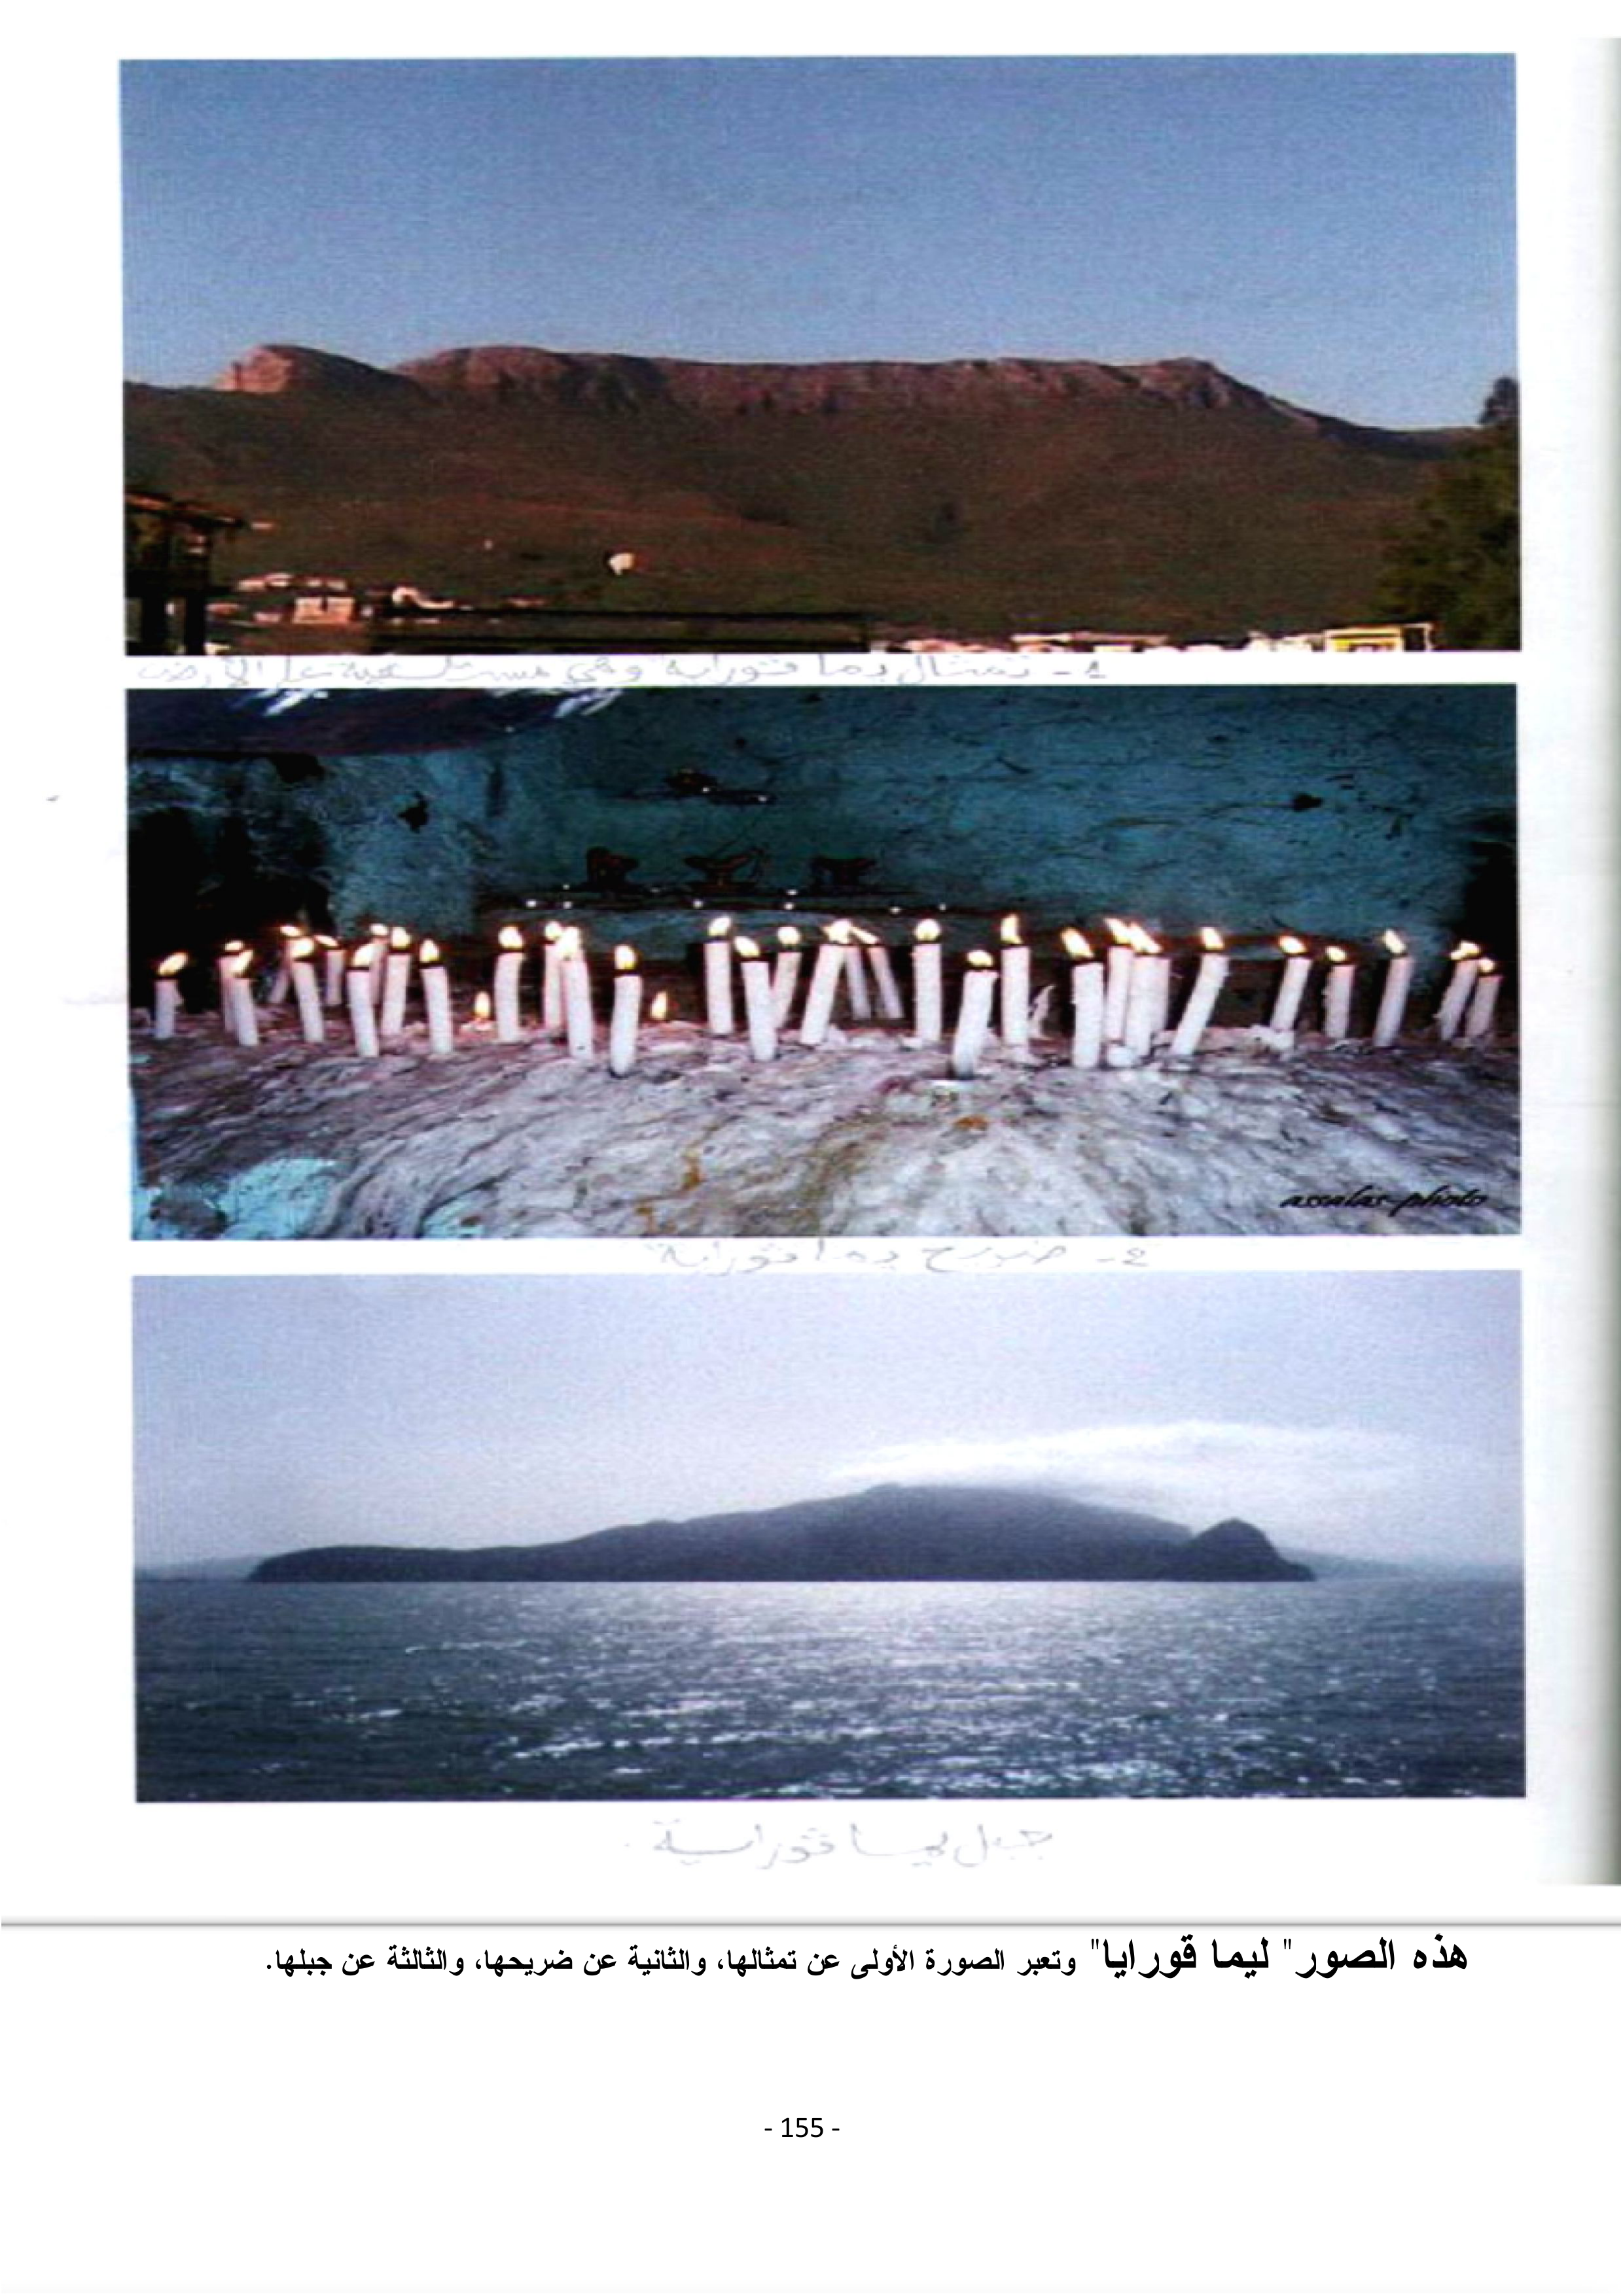 1- تمثال يما قوراية وهي مستلقية على الأرض
assalas-photo
2- ضريح يما قوراية
جبل يما قوراية
هذه الصور" ليما قورايا" وتعبر الصورة الأولى عن تمثالها، والثانية عن ضريحها، والثالثة عن جبلها.
- 155 -